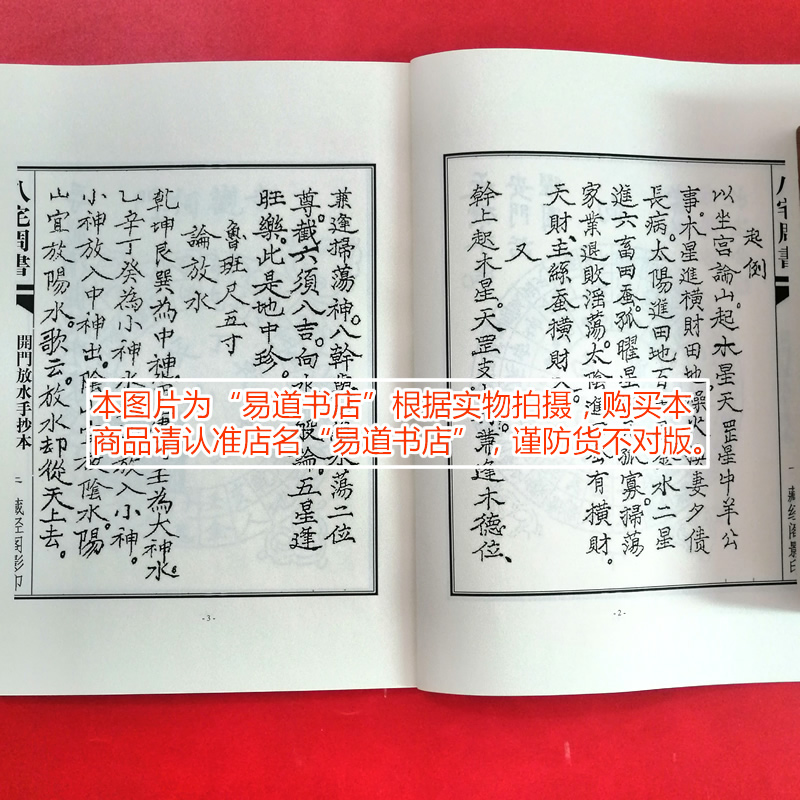 八宅周書
起例
以坐宮論山。起水星天罡星中羊公
事。木星進橫財田地。燥火 妻夕債
長病。太陽進田地百 水二星
進六畜田蚕。孤曜星 孤寡。掃荡
家業退敗淫荡。太陰進 有橫財。
天財、主絲蚕橫財
又
幹上起木星。天罡支 兼逢木德位、
- 2 -
兼逢掃荡神。八幹 水荡二位
尊截六須入吉。向水 般論。五星逢
旺樂。此是地中珍。
魯班尺五寸
論放水
乾坤艮巽為中神 為大神水。
乙辛丁癸為小神水 放入小神。
小神放入中神出。陰山 陰水。陽
山宜放陽水。歌云放水却從天上去。
- 3 -
八宅周書
開門放水手抄本
藏经阁影印
藏经阁影印
本图片为“易道书店”根据实物拍摄，购买本
商品请认准店名“易道书店”，谨防货不对版。